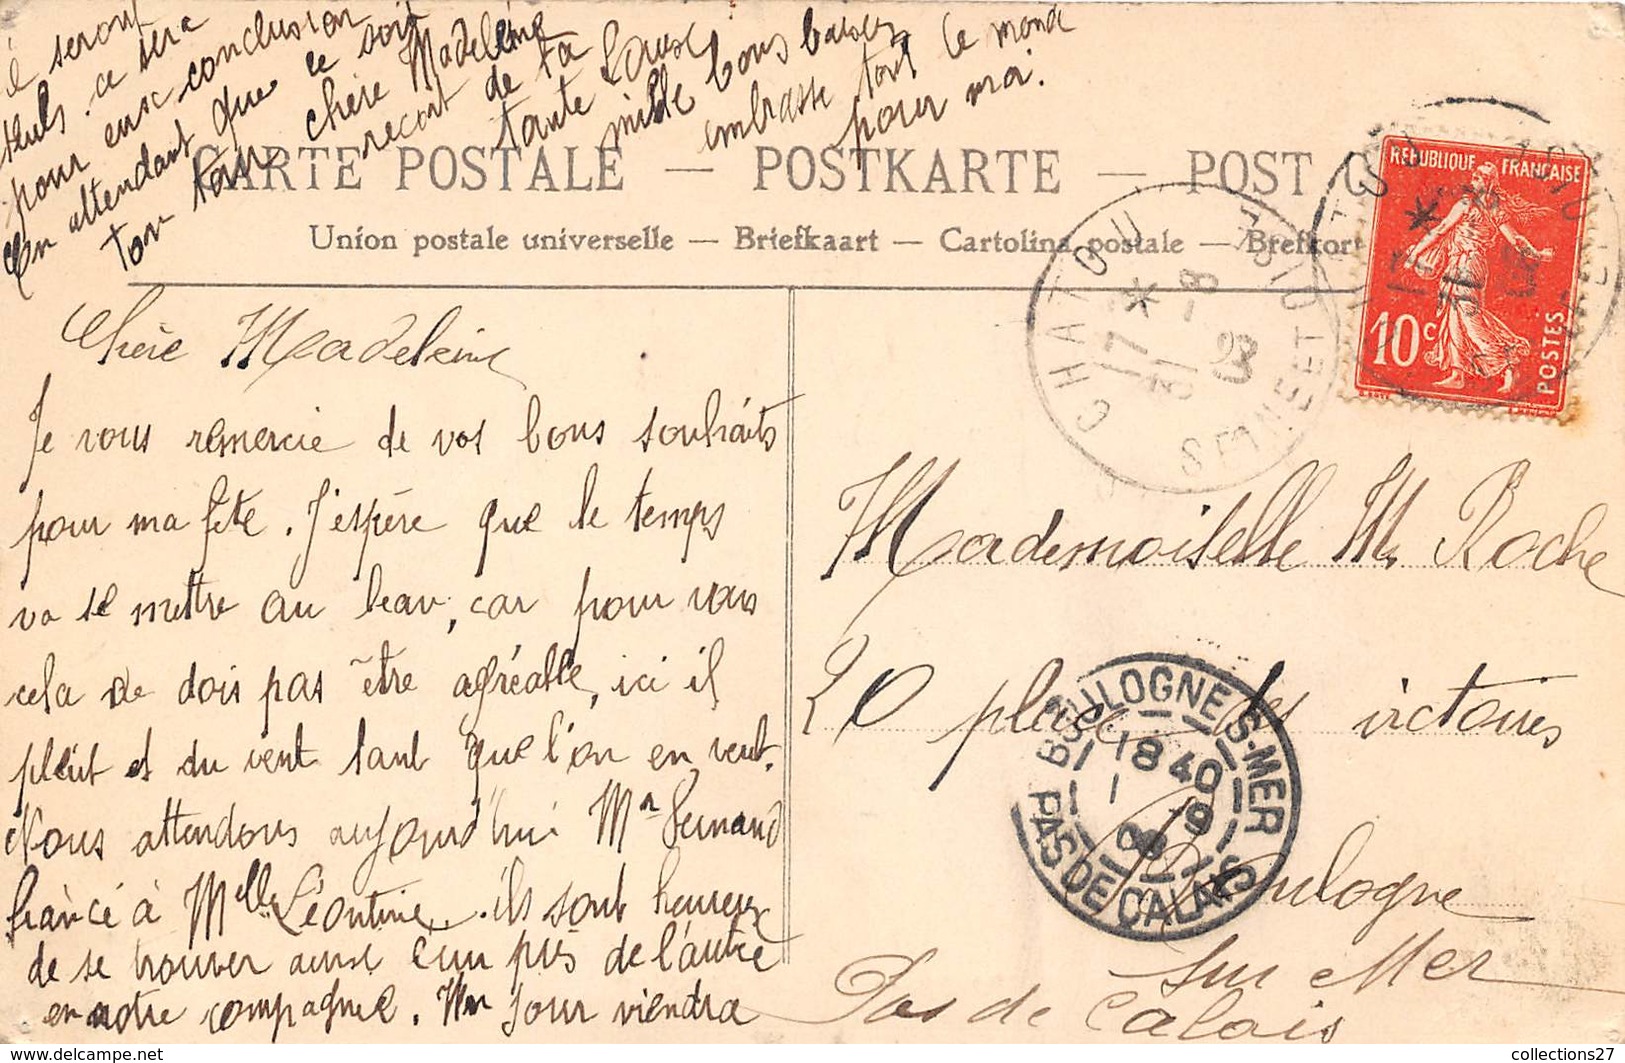 Chère Madeleine
Je vous remercie de vos bons souhaits
pour ma fête. J'espère que le temps
va se mettre au beau, car pour vous
cela ne dois pas être agréable, ici il
pleut et du vent tant que l'on en veut.
Nous attendons aujourd'hui Mr Fernand
fiancé à Melle Léontine. ils sont heureux
de se trouver ainsi l'un près de l'autre
en notre compagnie. Un jour viendra
seront
seuls. ce sera
pour eux conclusion
En attendant que ce soit
ton tour chère Madeleine
recoit de ta
tante Louise
mille bons baisers
embrasse tout le monde
pour moi.
CARTE POSTALE — POSTKARTE — POST C
Union postale universelle — Briefkaart — Cartolina postale — Brefkort
REPUBLIQUE FRANÇAISE
10c POSTES
CHATOU
17
31 - 8
09
SEINE ET OISE
Mademoiselle M. Roche
20 place des victoires
Boulogne
sur Mer
Pas de Calais
BOULOGNE-S-MER
18 40
1 - 9
09
PAS DE CALAIS
collections27